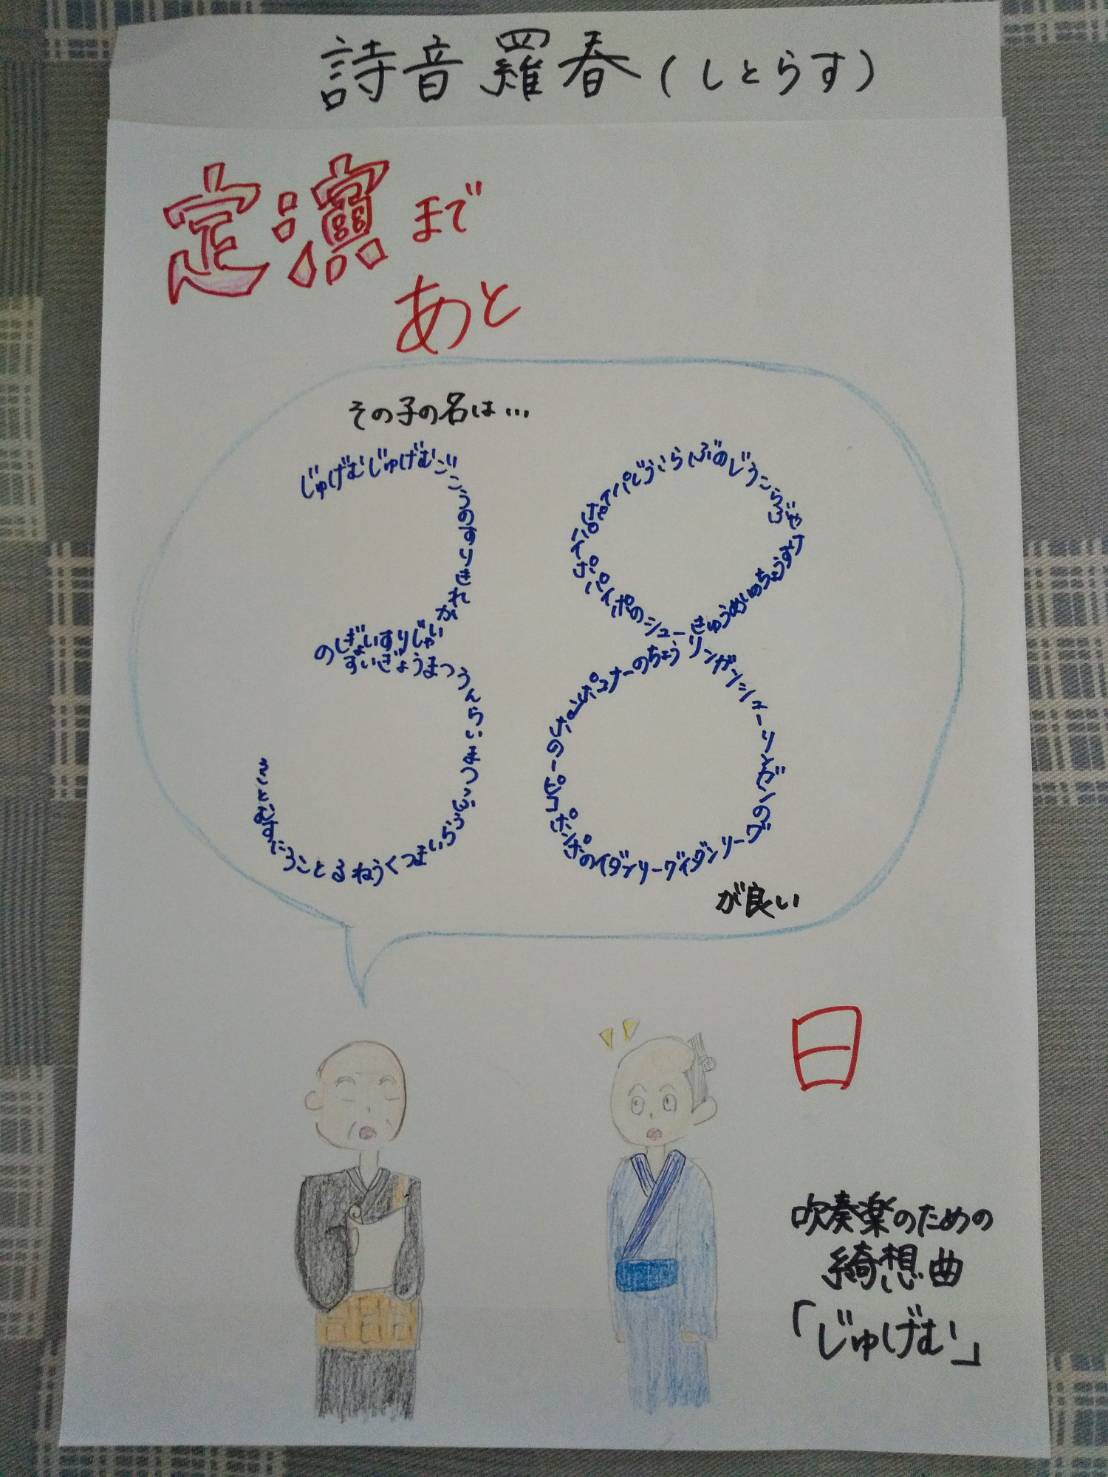 詩音羅春(しとらす)
定演まで
あと
その子の名は…
じゅげむじゅげむごこうのすりきれかいじゃりすいぎょの
すいぎょうまつうんらいまつふうらいまつくうねるところにすむとこ
ろ
やぶらこうじのぶらいこうじパイポパイポ
パイポのシューリンガンシューリンガンのグーリンダイグーリンダイのポンポコピーのポンポコナーのちょうきゅうめいのちょうすけ
が良い
日
吹奏楽のための
綺想曲
「じゅげむ」